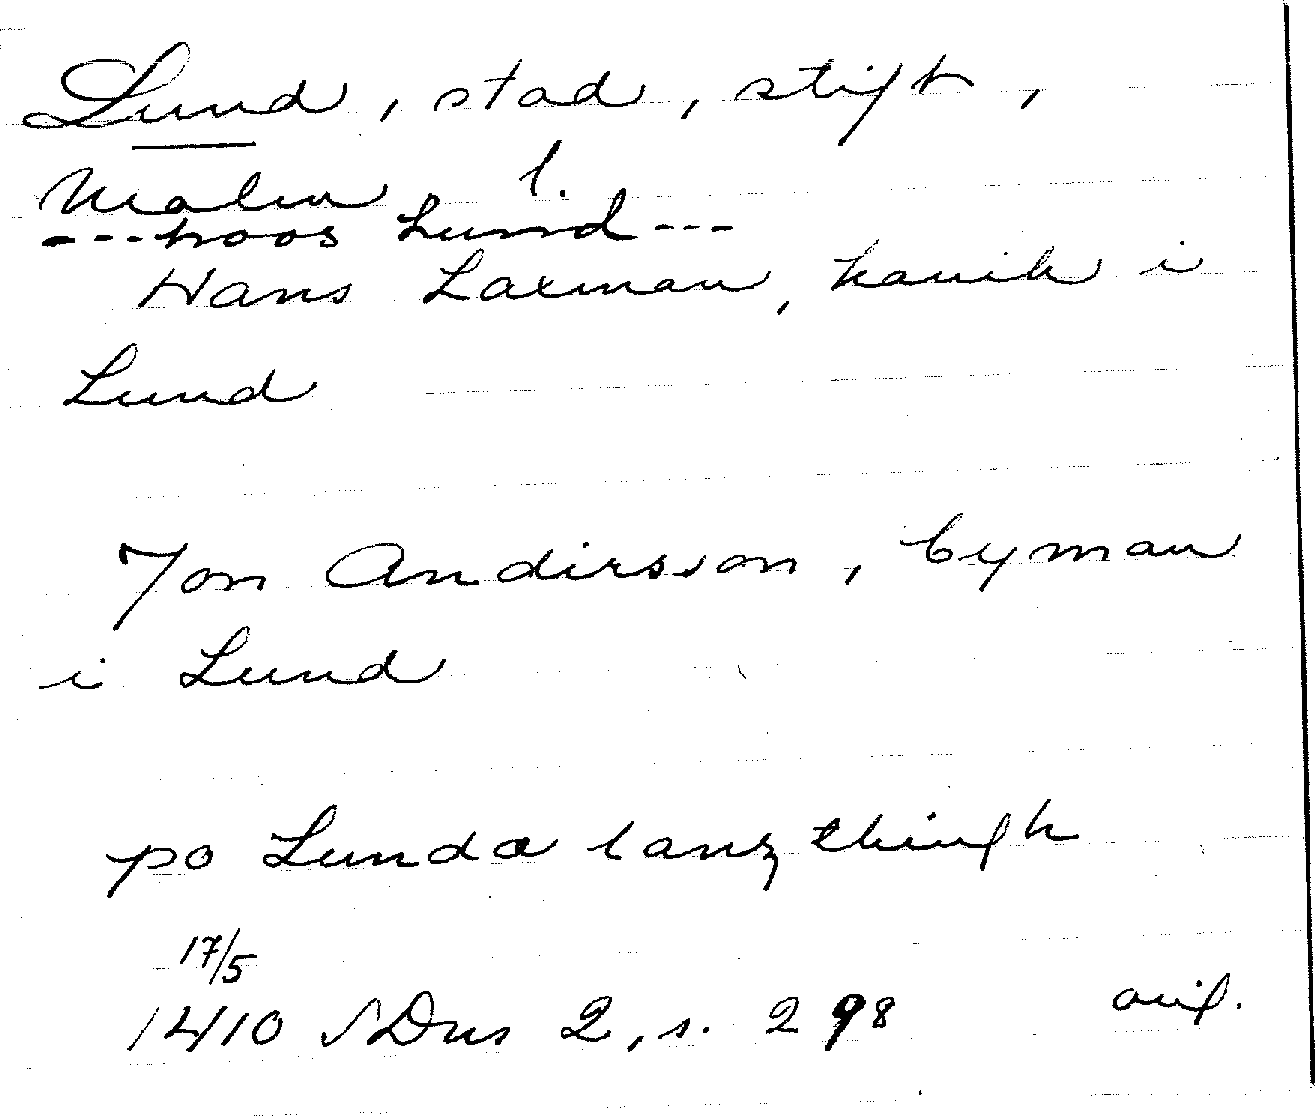 Lund, stad, stift,
Malm l.
---hoos Lund---
Hans Laxman, kanik i
Lund
Jon Andirsson, byman
i Lund
po Lunda lanz thingh
17/5
1410 SDns 2, s. 298 avs.